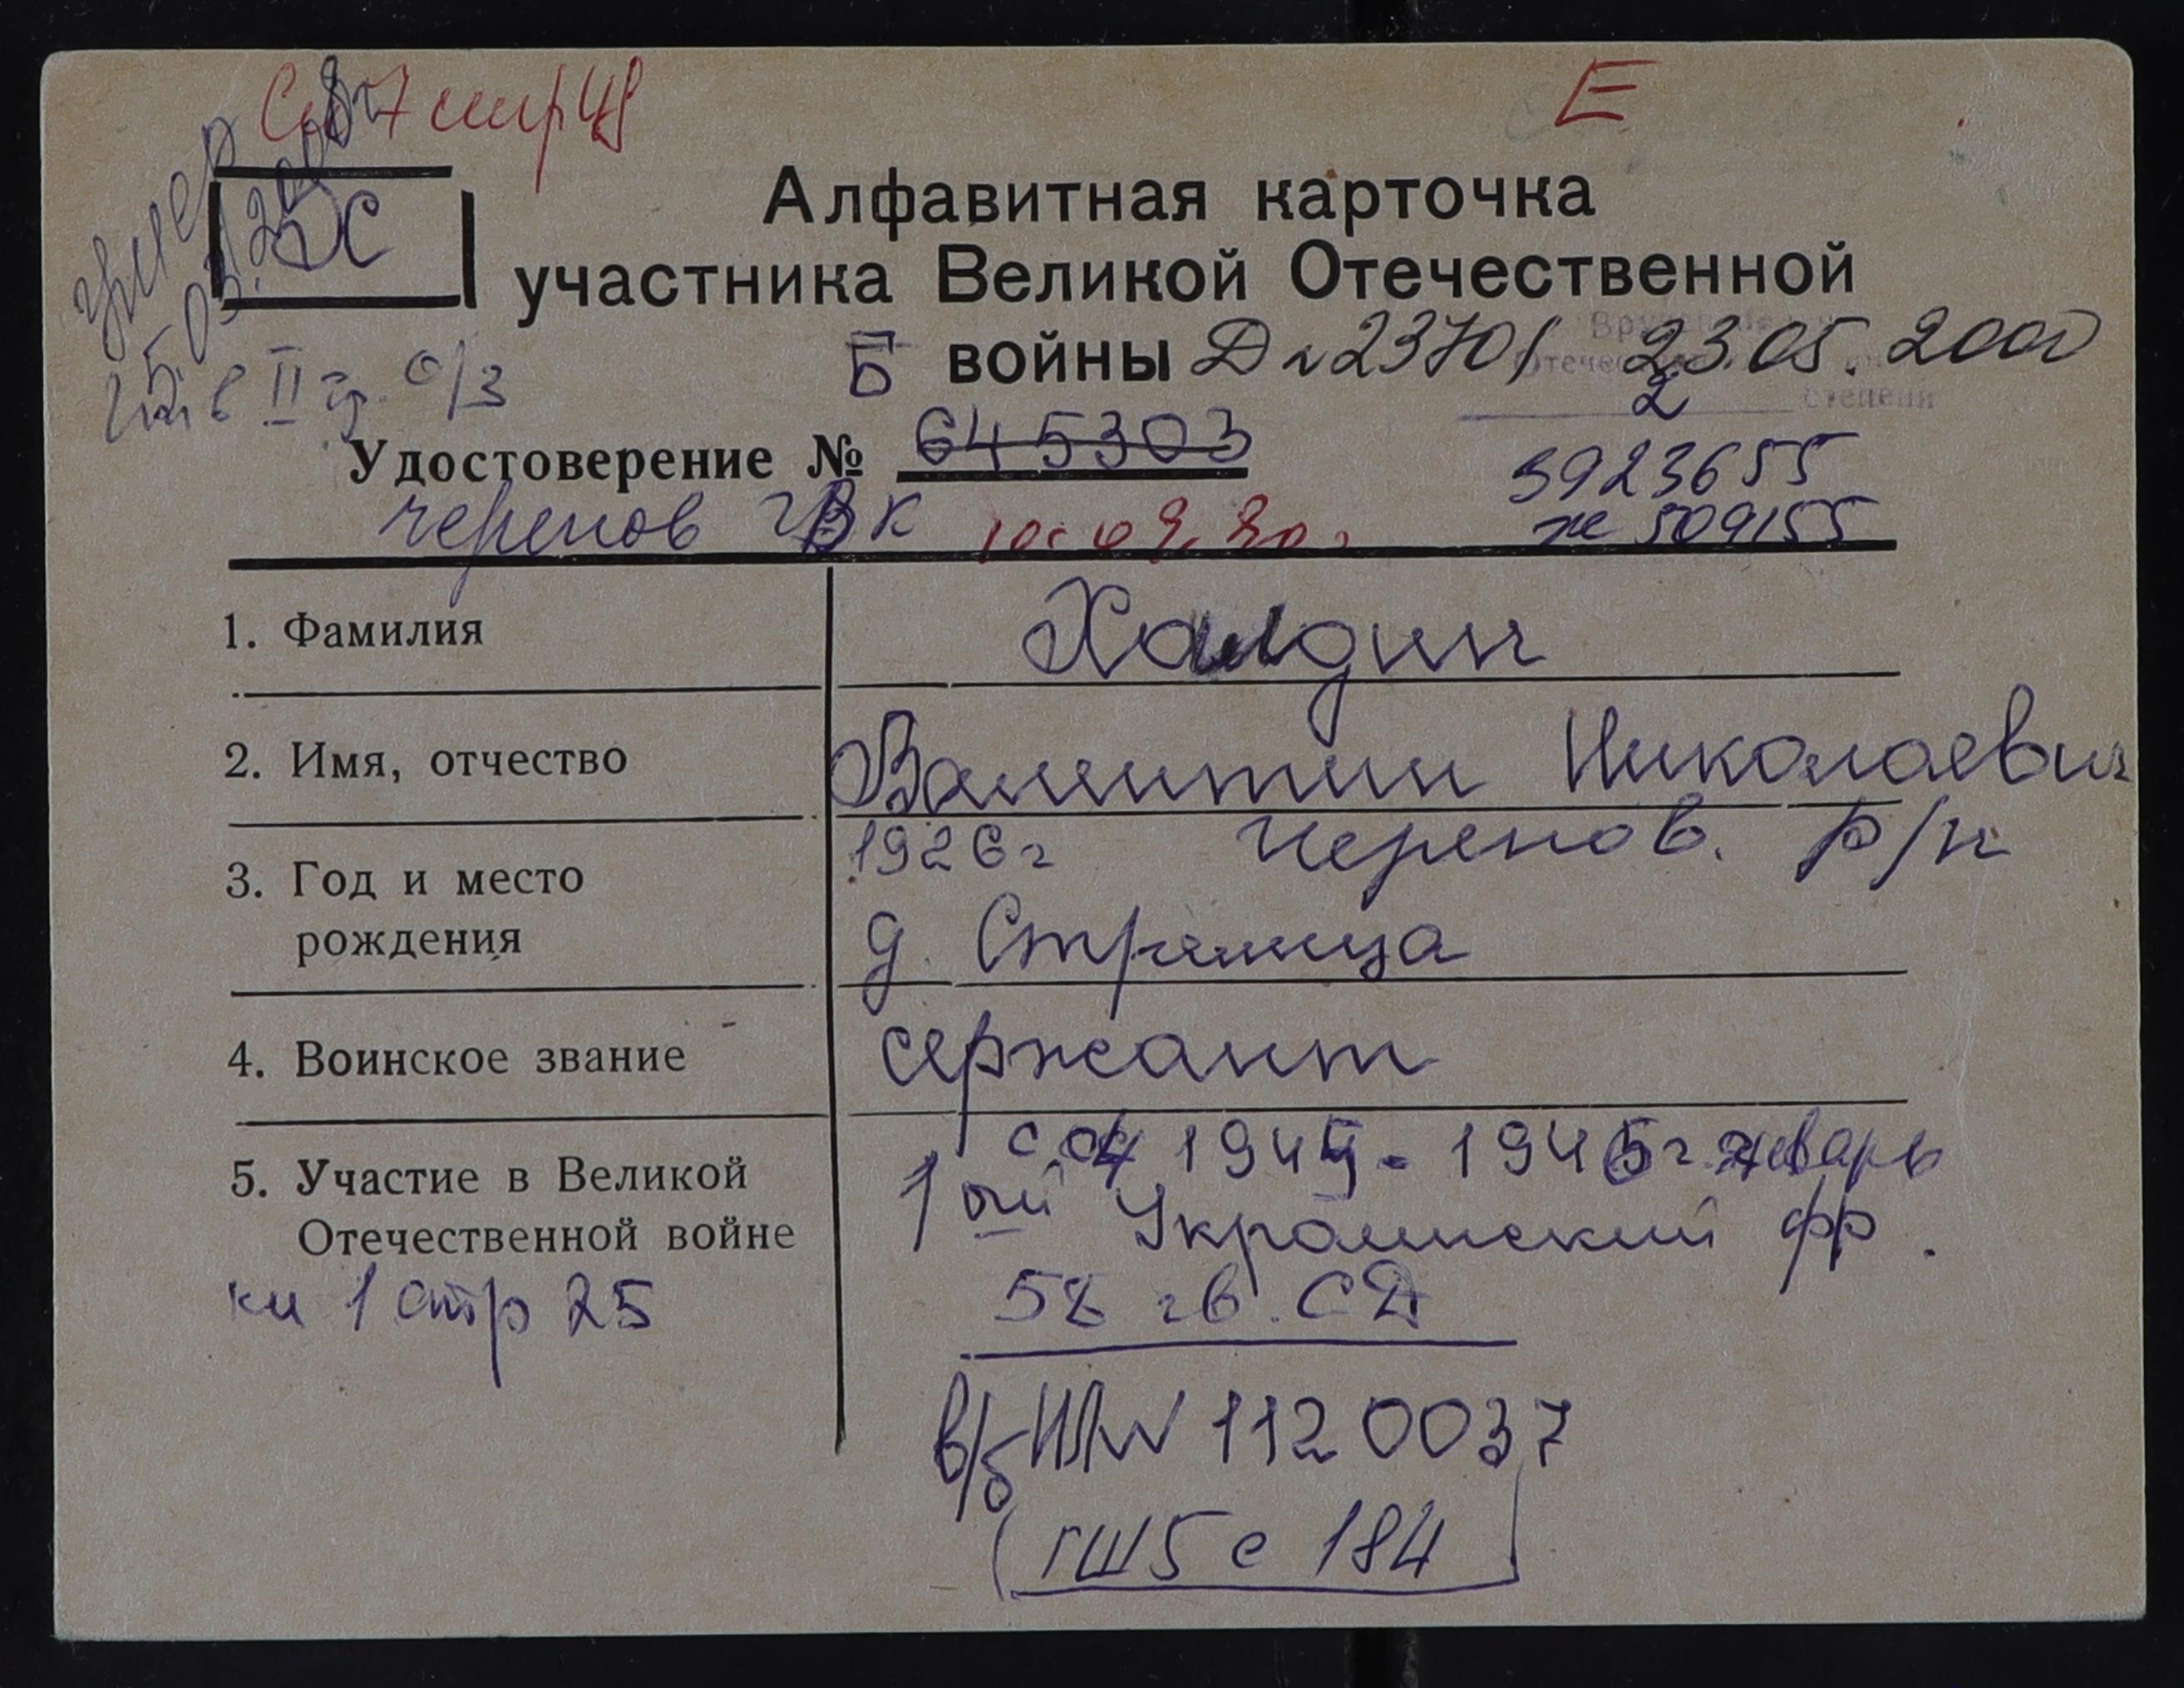 стр 48
Е
умер
ДС
Алфавитная карточка
участника Великой Отечественной
Б войны Д № 23701 23.05.2000
инв II гр. о/з
Отечес
2 степени
Удостоверение № 645303
3923655
черепов ГВК 10.09.80г
же 509155
1. Фамилия Халдин
2. Имя, отчество Валентин Николаевич
3. Год и место рождения 1926г Черепов. р/н
д. Стрелица
4. Воинское звание сержант
5. Участие в Великой Отечественной войне с 04 1944 - 1945г январь
1ый Украинский фр.
58 гв. СД
кн 1 стр 25
в/б № 1120037
ГШ 5 с 184